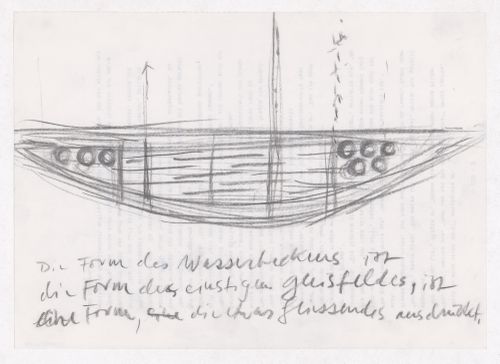 Die Form des Wasserbeckens ist
die Form des einstigen Gleisfeldes, ist
eine Form, die etwas fliessendes ausdrückt.